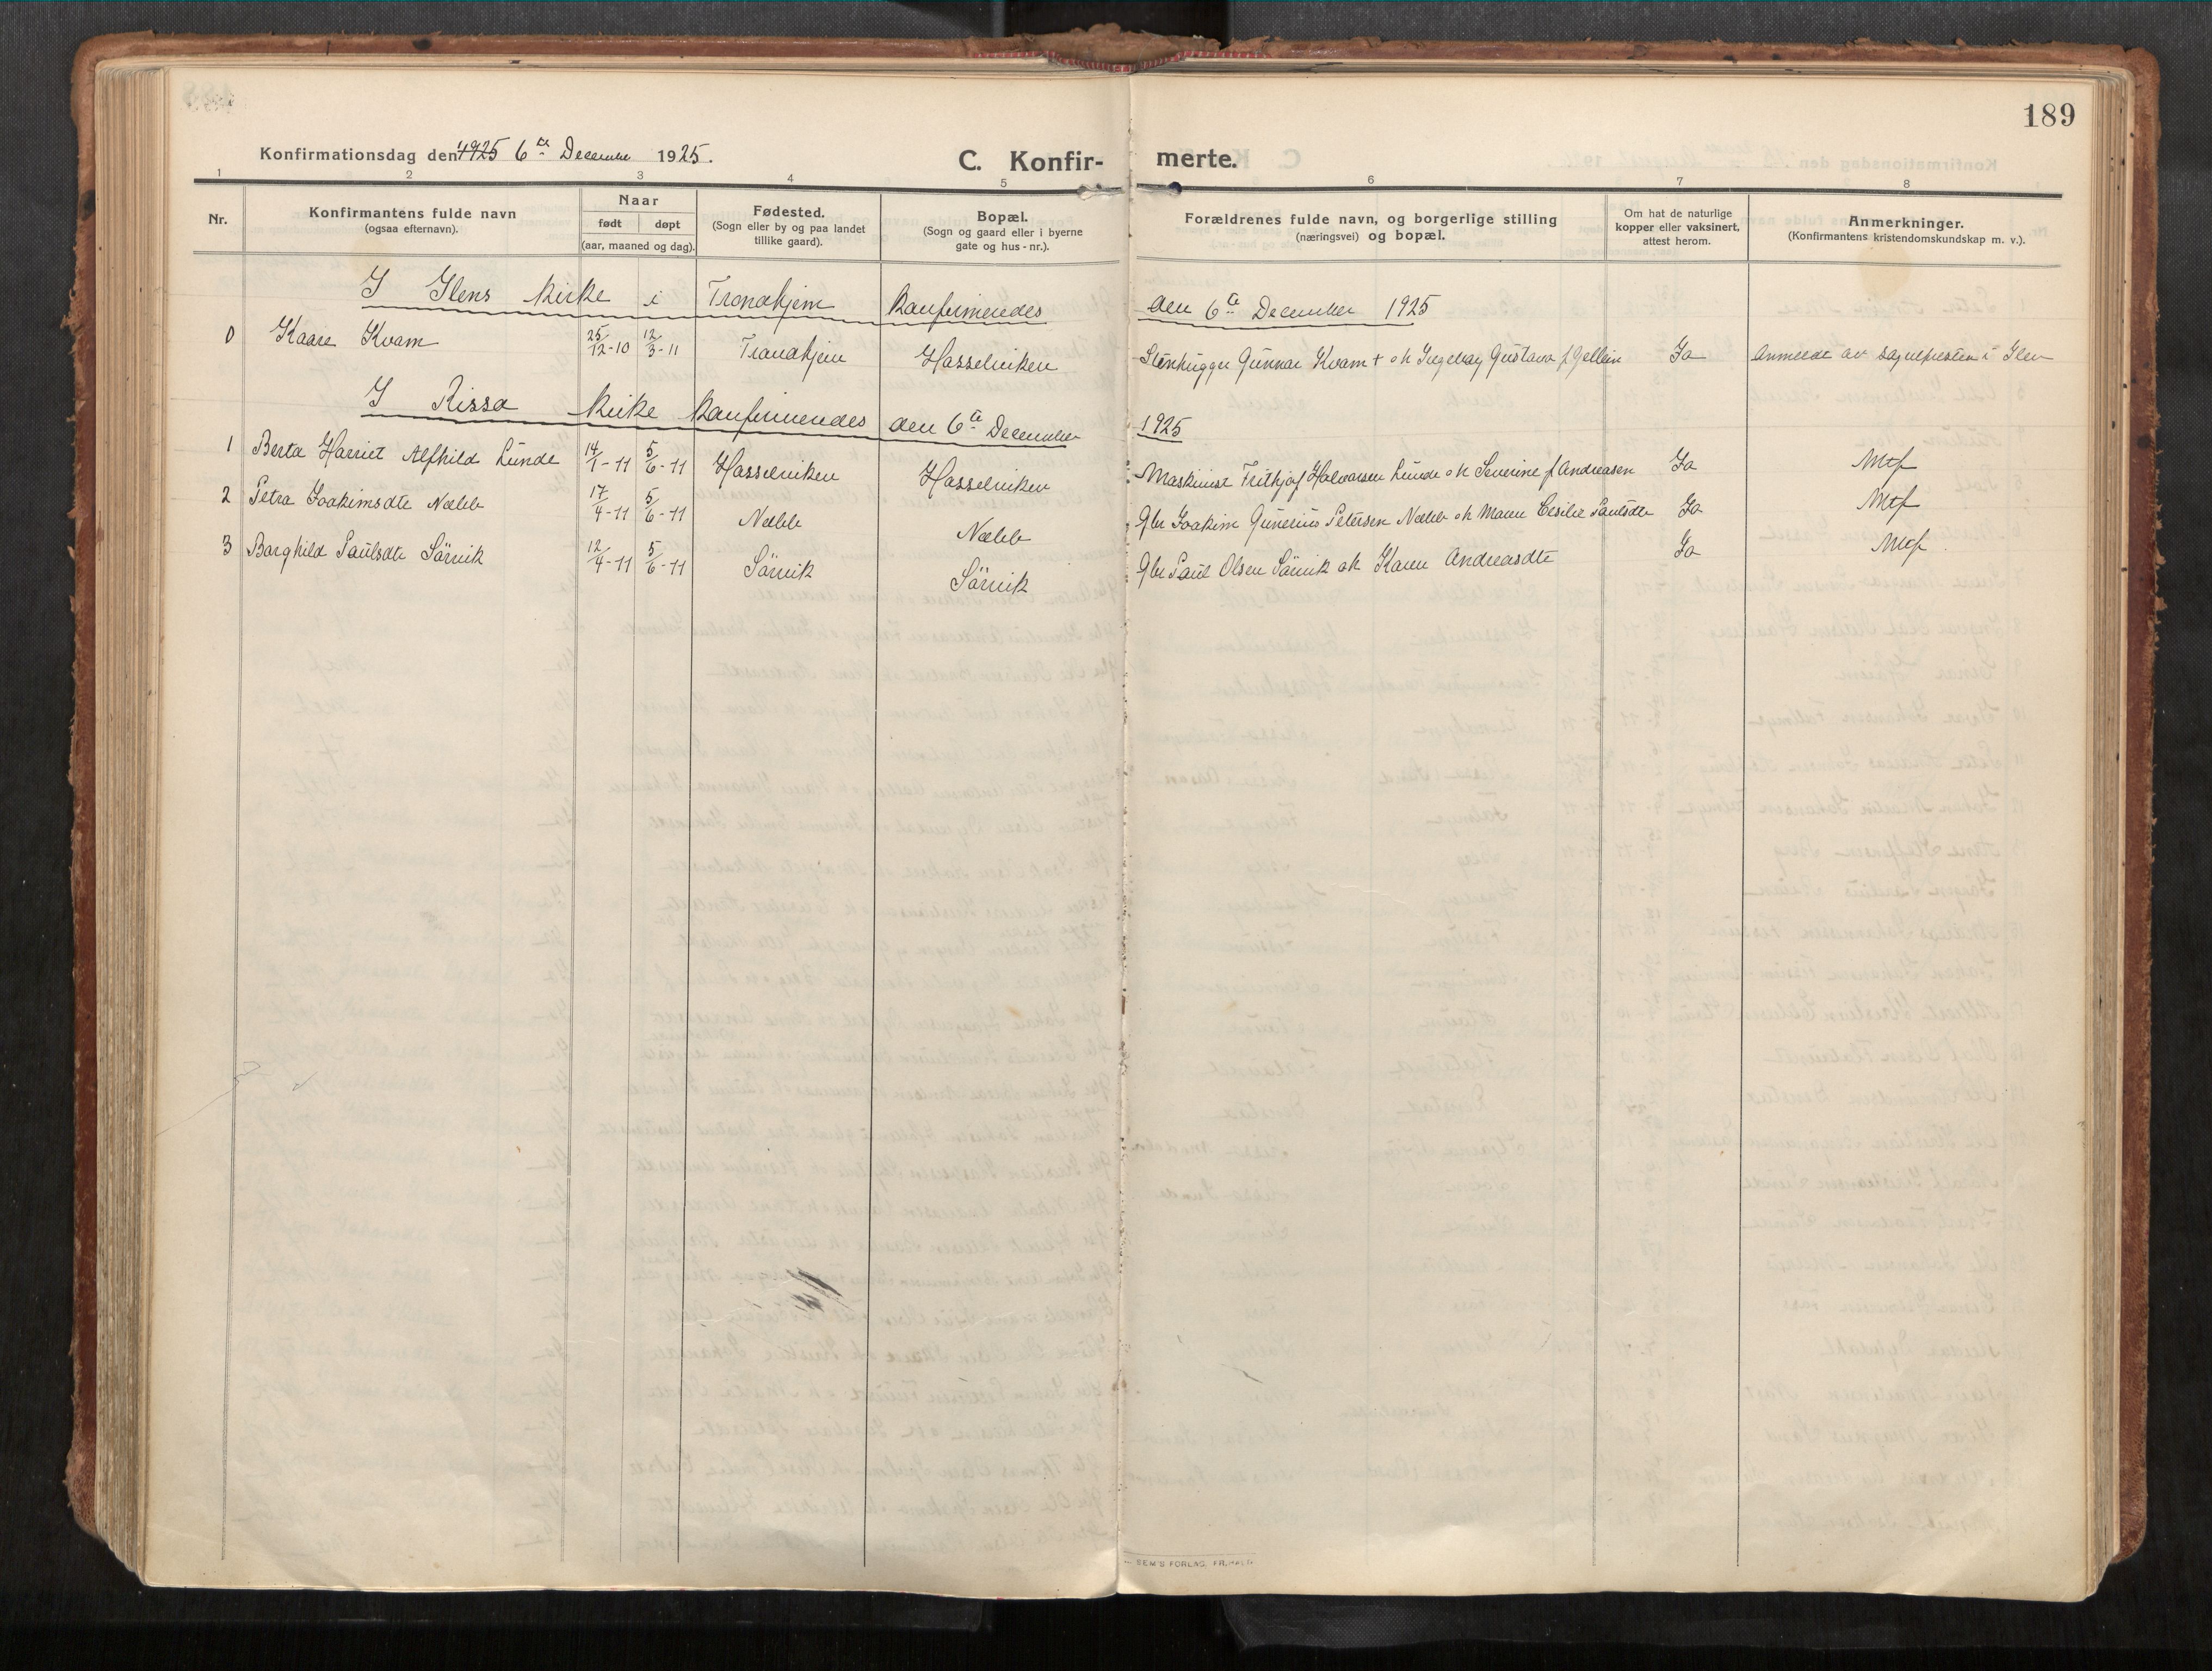 189
Konfirmationsdag den 1925 6te December 1925.
C. Konfir- merte.
1 2 3 4 5 6 7 8
Nr.
Konfirmantens fulde navn
(ogsaa efternavn).
Naar
født døpt
(aar, maaned og dag).
Fødested.
(Sogn eller by og paa landet
tillike gaard).
Bopæl.
(Sogn og gaard eller i byerne
gate og hus-nr.).
Forældrenes fulde navn, og borgerlige stilling
(næringsvei) og bopæl.
Om hat de naturlige
kopper eller vaksinert,
attest herom.
Anmerkninger.
(Konfirmantens kristendomskundskap m. v.).
I Ilens kirke i Trondhjem konfirmeredes den 6te December 1925
0 Kaare Kvam 25/12-10 12/3-11 Trondhjem Hasselviken Stenhugger Gunnar Kvam + ok Ingeborg Gustava f Gellein Ja Anmeldt av sognepresten i Ilen
I Rissa kirke konfirmeredes den 6te December 1925
1 Berta Harriet Alfhild Lunde 14/1-11 5/6-11 Hasselviken Hasselviken Maskinist Fritkjof Halvorsen Lunde ok Severine f Andreasen Ja Mtf
2 Petra Joakimsdtr Nebb 17/4-11 5/6-11 Nebb Nebb Gbr Joakim Gunerius Petersen Nebb ok Maren Cesilie Paulsdtr Ja Mtf
3 Borghild Paulsdtr Sörvik 12/4-11 5/6-11 Sörvik Sörvik Gbr Paul Olsen Sörvik ok Karen Andreasdtr Ja Mtf
SEM'S FORLAG, FR.HALD